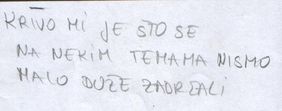 KRIVO MI JE ŠTO SE
NA NEKIM TEMAMA NISMO
MALO DUŽE ZADRŽALI